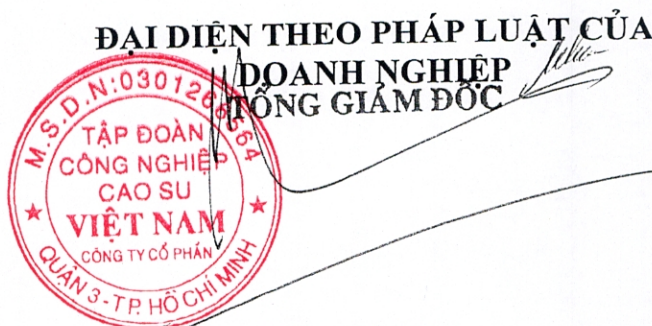 ĐẠI DIỆN THEO PHÁP LUẬT CỦA
DOANH NGHIỆP
TỔNG GIÁM ĐỐC
M.S.D.N:0301266564
TẬP ĐOÀN
CÔNG NGHIỆP
CAO SU
VIỆT NAM
CÔNG TY CỔ PHẦN
QUẬN 3 - T.P. HỒ CHÍ MINH